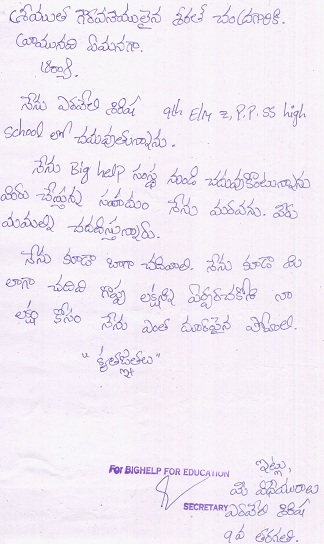 శ్రీయుత గౌరవనీయులైన శరత్ చంద్రగారికి.
వ్రాయునది ఏమనగా.
నేను ఎరవేలి శిరిష 9th E/M Z.P.P.SS high
school లో చదువుతున్నాను.
నేను Big help సంస్థ నుండి చదువుకొంటున్నాను
మీరు చేస్తున్న సహాయం నేను మరవను. మీరు
మమల్ని చదివిస్తున్నారు.
నేను కూడా బాగా చదివాలి. నేను కూడా మీ
లాగా చదివి గొప్ప లక్ష్యాన్ని ఏర్పరుచుకోని నా
లక్ష్యం కోసం నేను ఎంత దూరమైన పోవాలి.
"కృతజ్ఞతలు"
For BIGHELP FOR EDUCATION
SECRETARY
ఇట్లు,
మీ విధేయురాలు
ఎరవేలి శిరిష
9వ తరగతి.